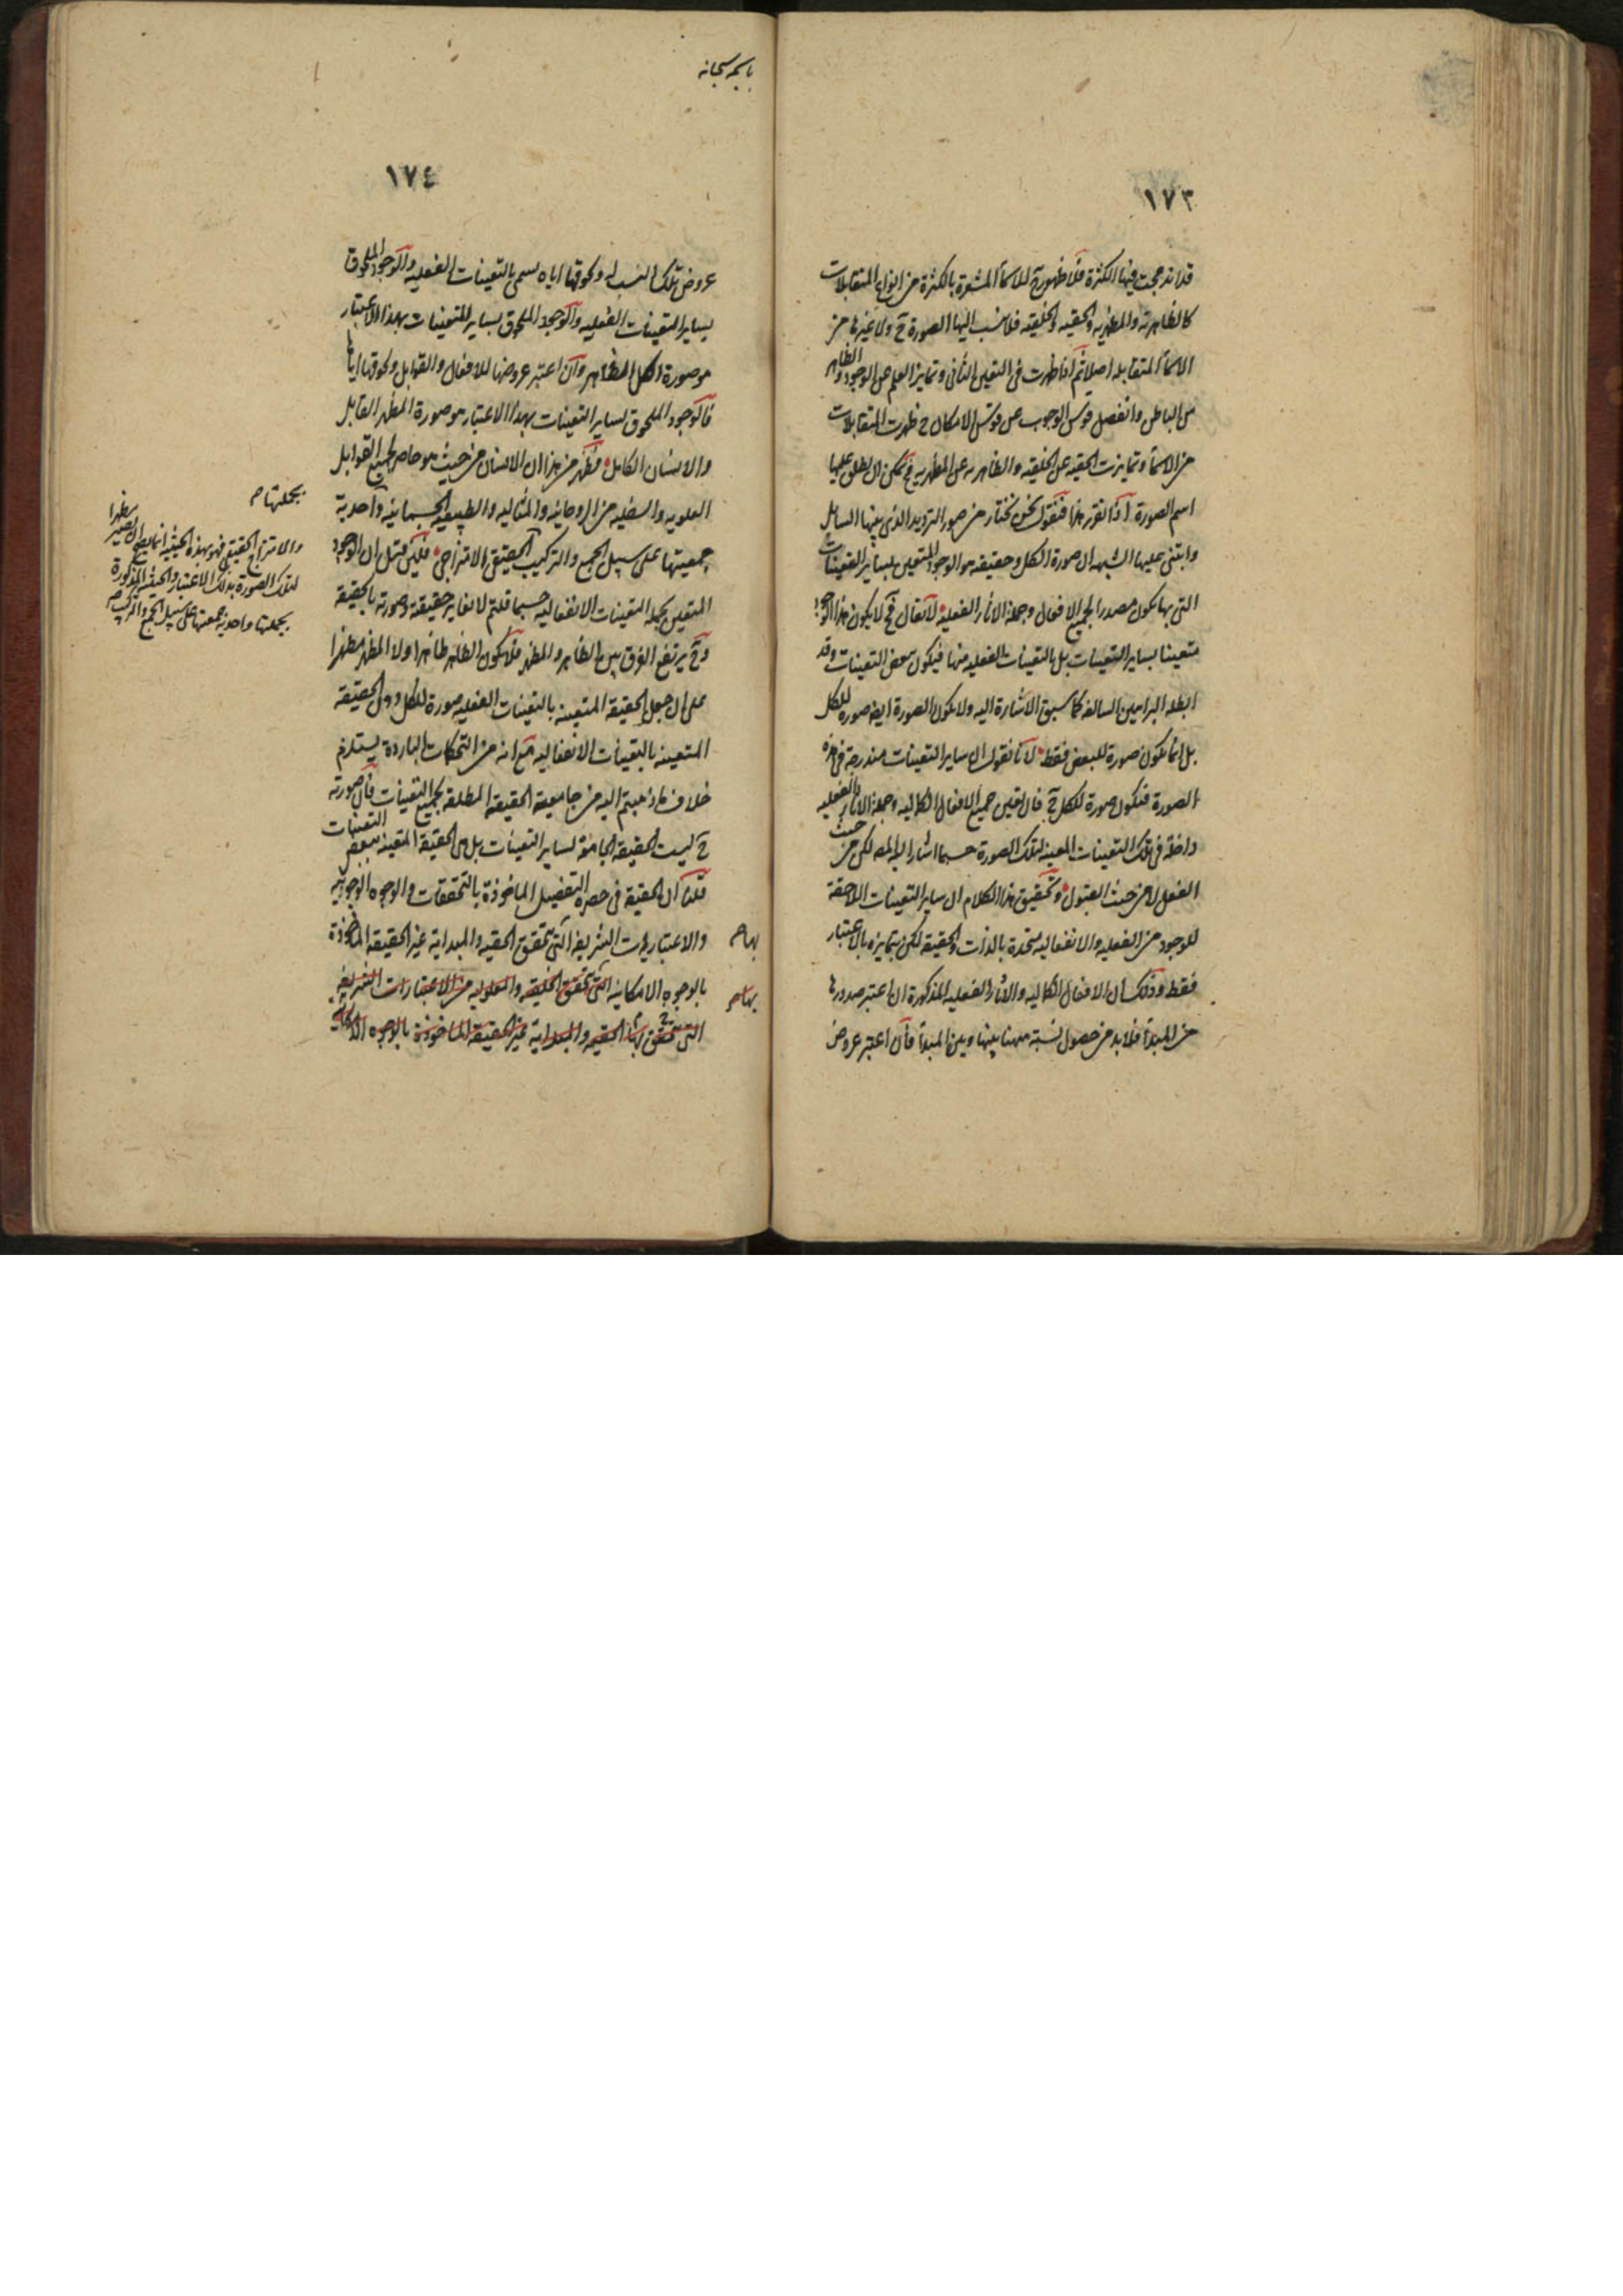 ١٧٣
قد اندمجت فيها الكثرة فلا ظهور ح للاسماء المشعرة بالكثرة من انواع المتقابلات
كالظاهرية والمظهرية والحقية والخلقية فلا ينسب اليها الصورة ح ولا غيرها من
الاسماء المتقابلة اصلا ثم اذا ظهرت فى التعين الثانى وتمايز العلم عن الوجود والظاهر
من الباطن وانفصل قوس الوجوب عن قوس الامكان ح ظهرت المتقابلات
من الاسماء وتمايزت الحقية عن الخلقية والظاهرية عن المظهرية فح يمكن ان يطلق عليها
اسم الصورة اذا تقرر هذا فنقول نحن نختار من صور الترديد الذى بينها السائل
وابتنى عليها الشبهة ان صورة الكل وحقيقته هو الوجود المتعين بساير التعينات
التى بها يكون مصدرا لجميع الافعال وجملة الاثار الفعلية لا يقال فح لا يكون هذا الوجود
متعينا بساير التعينات بل بالتعينات الفعلية منها فيكون ببعض التعينات وقد
ابطله البراهين السالفة كما سبق الاشارة اليه ولا يكون الصورة ايضا صورة للكل
بل انما يكون صورة للبعض فقط لانا نقول ان ساير التعينات مندرجة فى هذه
الصورة فيكون صورة للكل ح فان تعين جميع الافعال الكمالية وجملة الاثار الفعلية
داخلة فى تلك التعينات المعينة لتلك الصورة حسبما اشار اليه المص لكن من حيث
الفعل لا من حيث القبول وتحقيق هذا الكلام ان ساير التعينات اللاحقة
للوجود من الفعلية والانفعالية متحدة بالذات والحقيقة لكن متمايزة بالاعتبار
فقط وذلك ان الافعال الكمالية والاثار الفعلية المذكورة ان اعتبر صدورها
من المبدأ فلا بد من حصول نسبة مهنا بينها وبين المبدأ فان اعتبر عروض
باسمه سبحانه
١٧٤
عروض تلك النسب له ولحوقها اياه يسمى بالتعينات الفعلية والوجود الملحوق
بساير التعينات الفعلية والوجود الملحوق بساير التعينات بهذا الاعتبار
هو صورة الكل المظاهر وان اعتبر عروضها للافعال والقوابل ولحوقها اياها
فالوجود الملحوق لساير التعينات بهذا الاعتبار هو صورة المظهر القابل
والانسان الكامل فظهر من هذا ان الانسان من حيث هو حاصر لجميع القوابل
العلوية والسفلية من الروحانية والمثالية والطبيعية الجسمانية واحدية
جمعيتها على سبيل الجمع والتركيب الحقيقى الامتزاجى فلئن قيل ان الوجود
المتعين بجملة التعينات الانفعالية حسبما قلتم لا تغاير حقيقته وصورته بالحقيقة
وح يرتفع الفرق بين الظاهر والمظهر فلا يكون الظاهر ظاهرا ولا المظهر مظهرا
على ان جعل الحقيقة المتعينة بالتعينات الفعلية صورة للكل دون الحقيقة
المتعينة بالتعينات الانفعالية مع انه من التحكمات الباردة يستلزم
خلاف ما ذهبتم اليه من جامعية الحقيقة المطلقة لجميع التعينات فان صورته
ح ليست الحقيقة الجامعة لساير التعينات بل هى الحقيقة المتعينة ببعض التعينات
قلنا ان الحقيقة فى حضرة التفصيل الماخوذة بالتحققات والوجوه الوجوبية
والاعتبارات الشريفة التى يتحقق الحقية والمبدائية غير الحقيقة الماخوذة
بالوجوه الامكانية التى يتحقق الخلقية والمعلولية من الاعتبارات الشريفة
التى يتحقق بها الحقية والمبدائية غير الحقيقة الماخوذة بالوجوه الامكانية
بها ص
بها ص
بجملتها ص
والامتزاج الحقيقى فهو بهذه الحيثية انما يصلح ان يصير مظهرا
لتلك الصورة بذلك الاعتبار والحيثية المذكورة
بجملتها واحدية جمعيتها على سبيل الجمع والتركيب ص